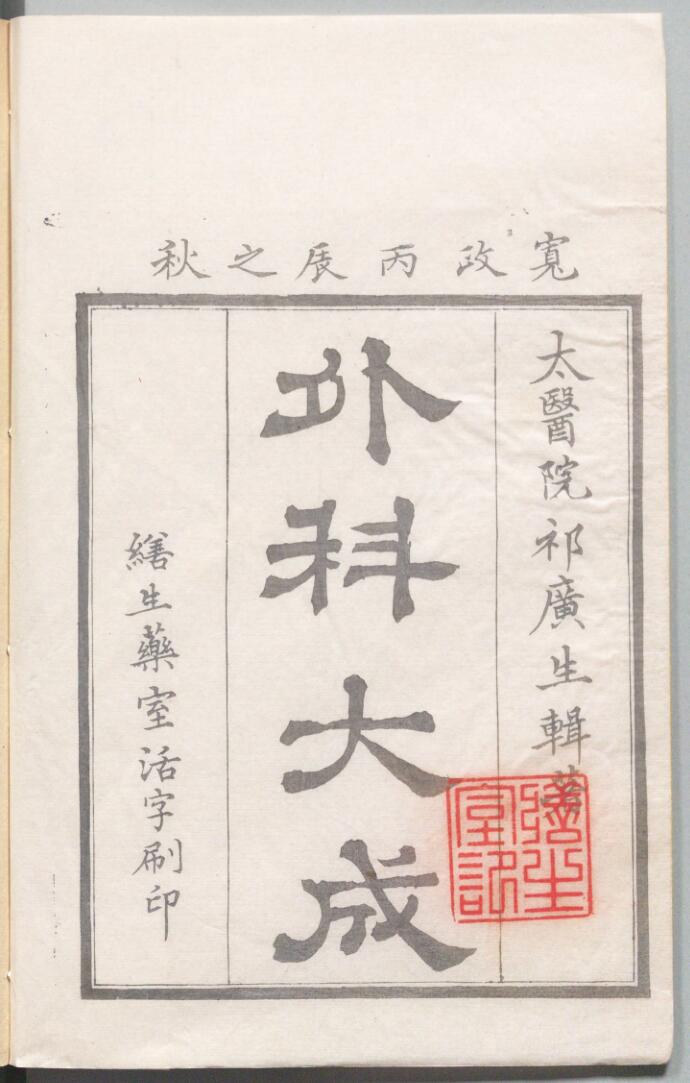 寬政丙辰之秋
太醫院祁廣生輯著
外科大成
繕生藥室活字刷印
繕生
室記